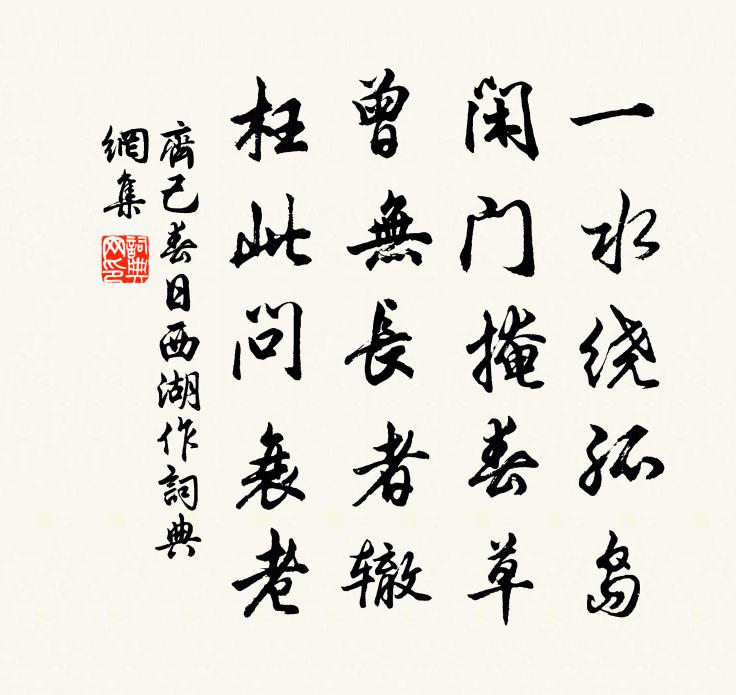 一水绕孤岛
闲门掩春草
曾無長者辙
枉此问衰老
齊己春日西湖作詞典
網集
詞典
网印